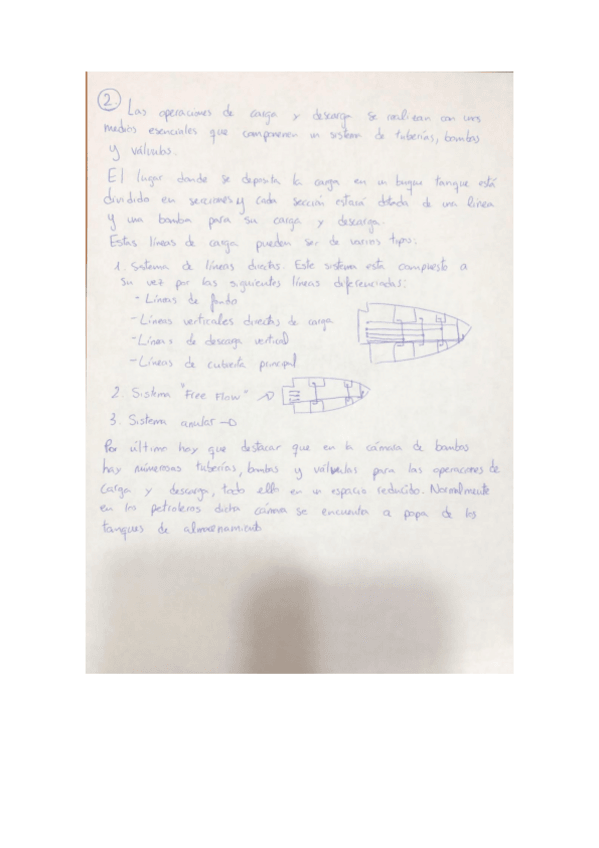 2. Las operaciones de carga y descarga se realizan con unos
medios esenciales que componenen un sistema de tuberías, bombas
y válvulas.
El lugar donde se deposita la carga en un buque tanque está
dividido en secciones y cada sección estará dotada de una línea
y una bomba para su carga y descarga.
Estas líneas de carga pueden ser de varios tipos:
1. Sistema de líneas directas. Este sistema está compuesto a
su vez por las siguientes líneas diferenciadas:
- Líneas de fondo
- Líneas verticales directas de carga
- Líneas de descarga vertical
- Líneas de cubierta principal
2. Sistema "Free Flow" →
3. Sistema anular →
Por último hay que destacar que en la cámara de bombas
hay númerosas tuberías, bombas y válvulas para las operaciones de
carga y descarga, todo ello en un espacio reducido. Normalmente
en los petroleros dicha cámara se encuentra a popa de los
tanques de almacenamiento